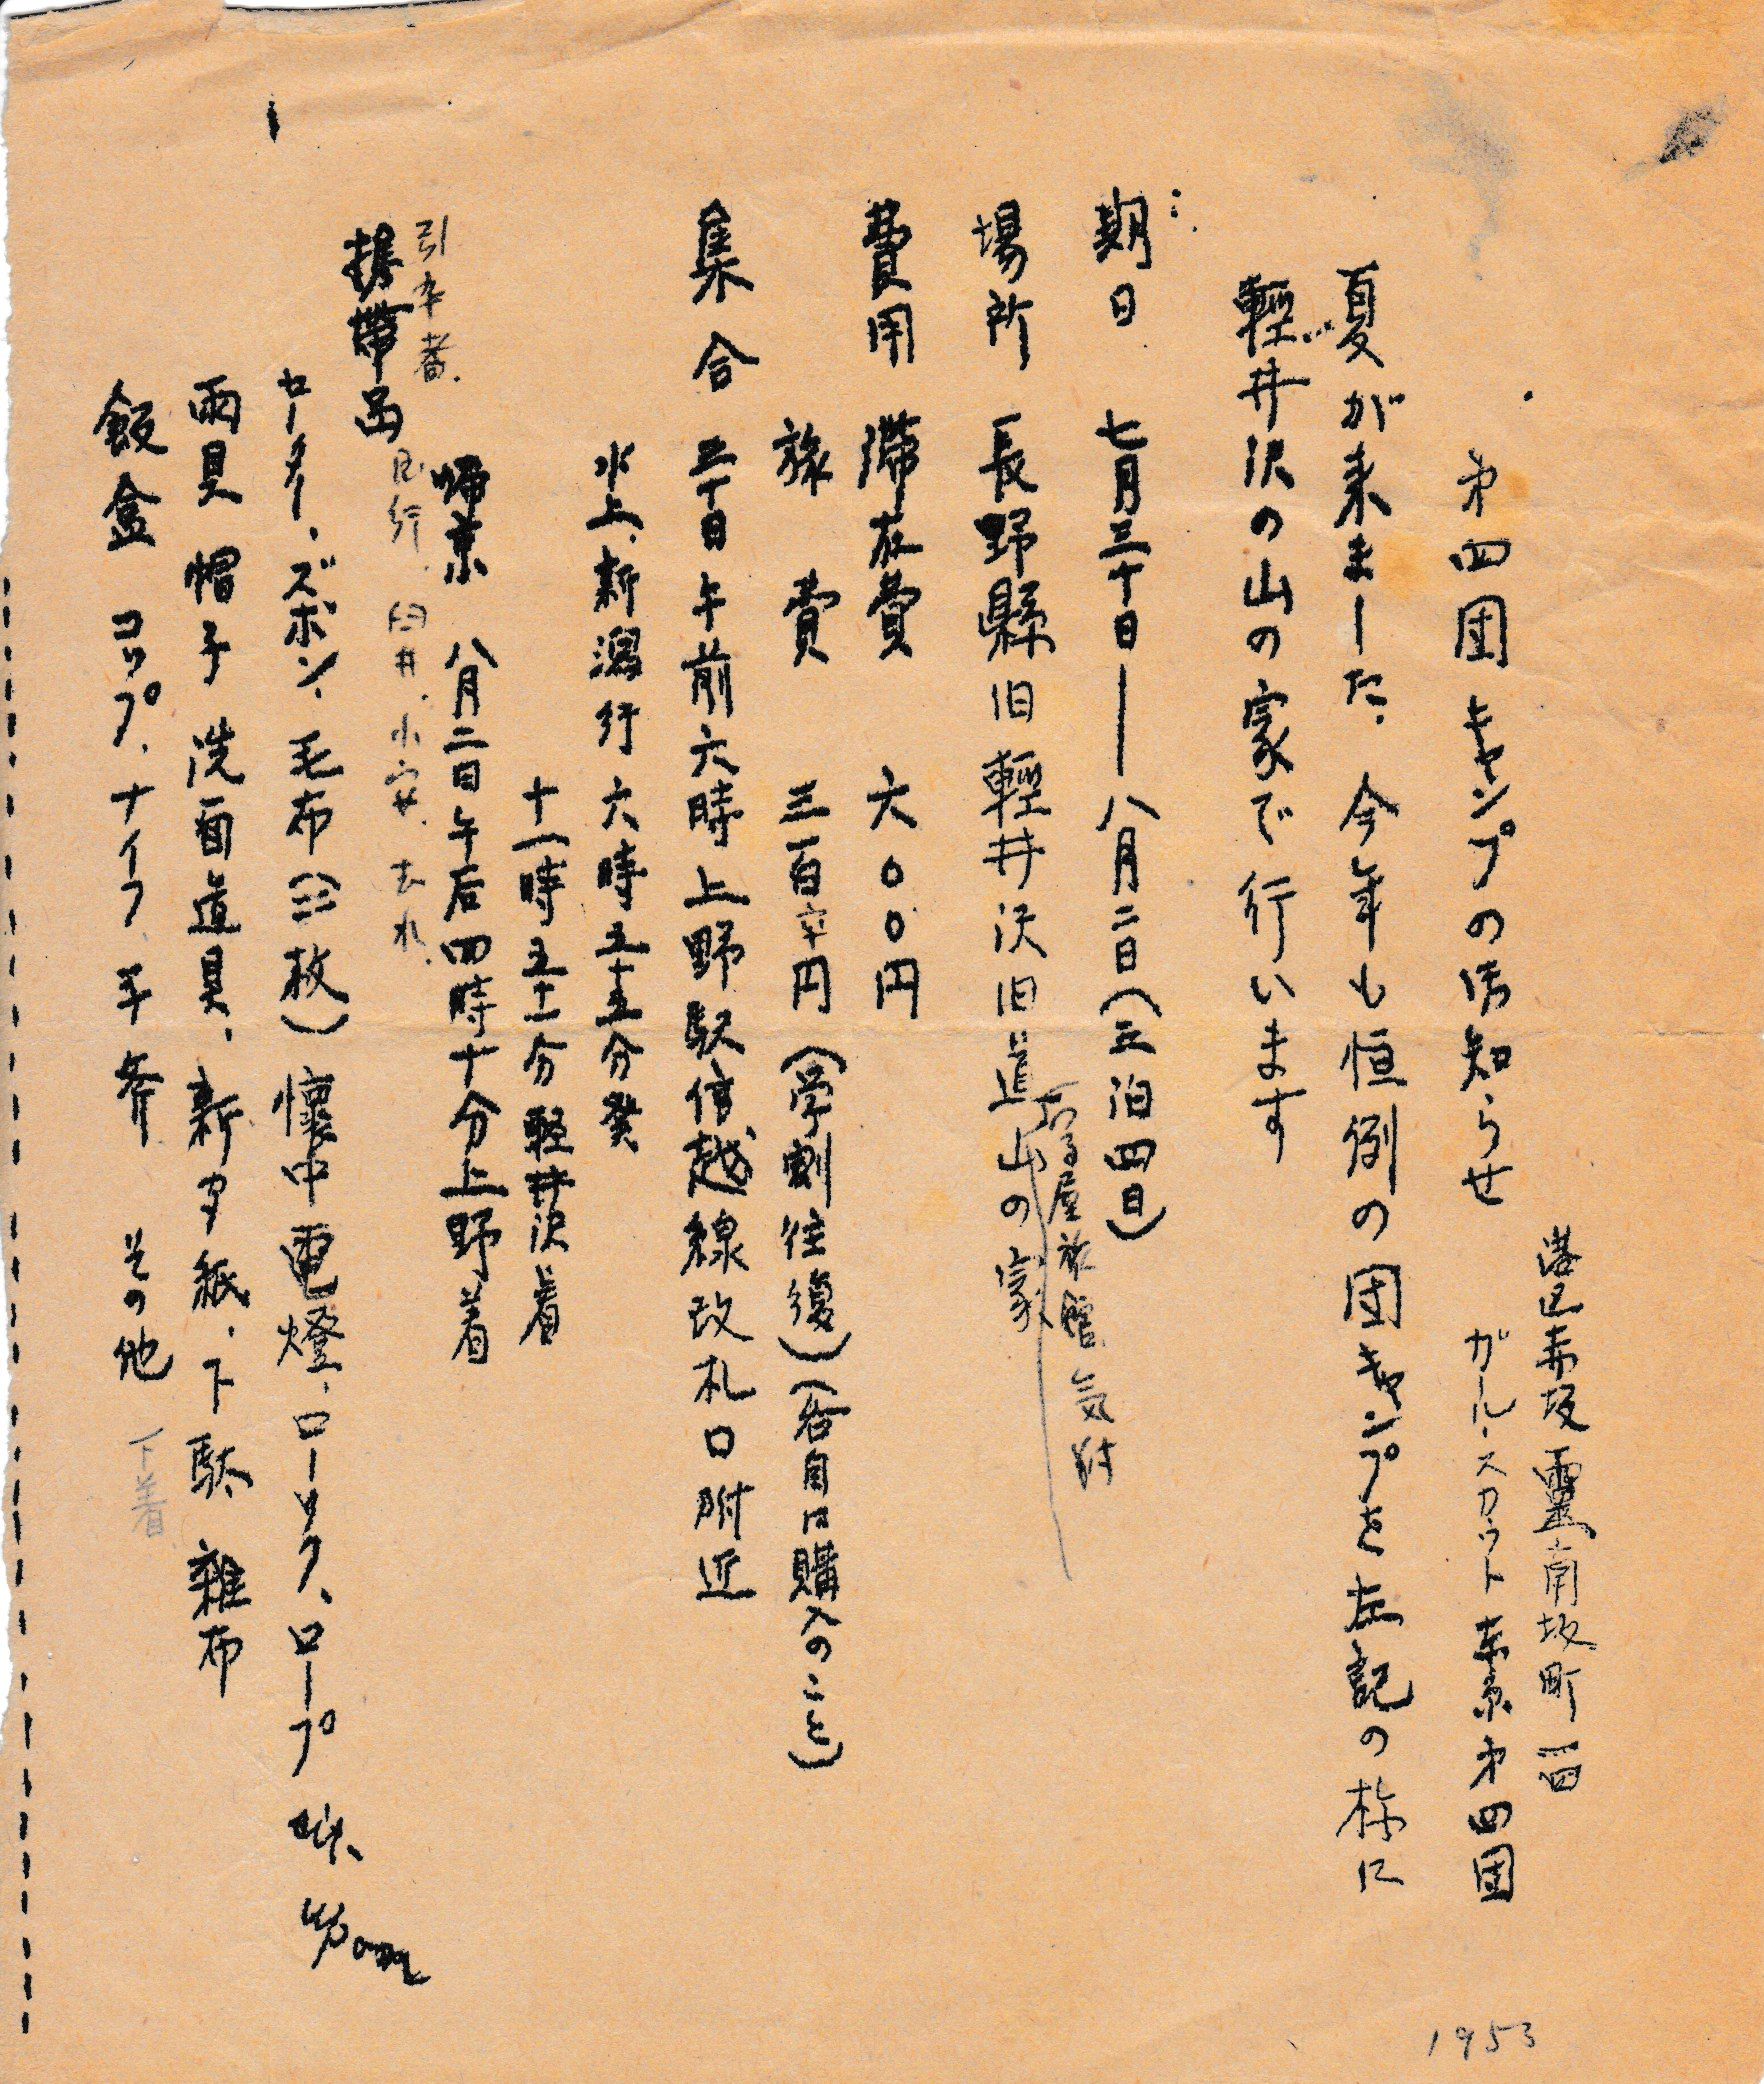 港区赤坂霊南坂町一四
ガールスカウト東京才四団
才四団キャンプの御知らせ
夏が来ました、今年も恒例の団キャンプを左記の様に
輕井沢の山の家で行います
期日 七月三十日―八月二日(三泊四日)
場所 長野縣旧輕井沢旧道山の家
屋旅館気付
費用 滞在費 六〇〇円
旅費 三百 円(学割往復)(各自口購入のこと)
集合 三十日午前六時上野駅信越線改札口附近
水上、新潟行 六時五十五分発
十一時五十一分 軽井沢着
帰京 八月二日午后四時十分上野着
引卒者
臼井、小安、
携帯品
セーター、ズボン、毛布(三枚)懐中電燈、ローソク、ロープ
雨具 帽子 洗面道具、新タ紙、下駄 雑布
飯盒 コップ、ナイフ 手斧 その他 下着
1953